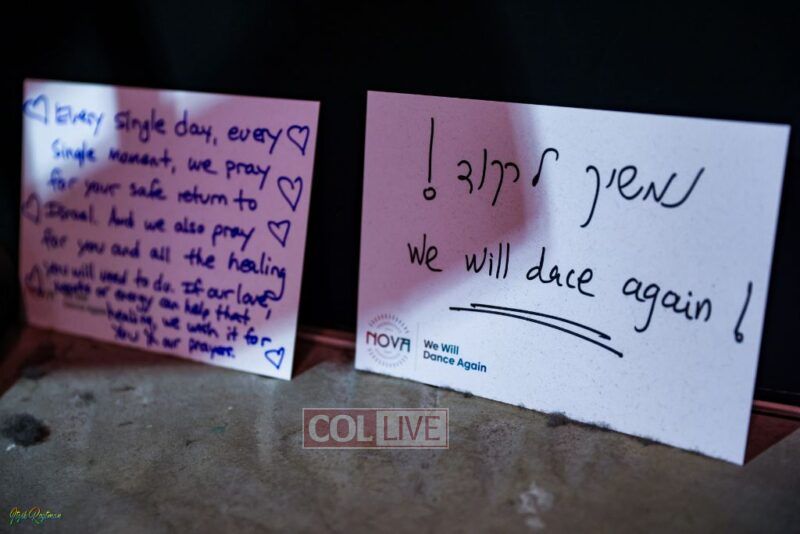 Every single day, every
single moment, we pray
for your safe return to
Israel. And we also pray
for you and all the healing
you will need to do. If our love,
or energy can help that
healing, we wish it for
you our prayers.
נמשיך לרקוד!
We will dace again!
NOVA
We Will
Dance Again
COL LIVE